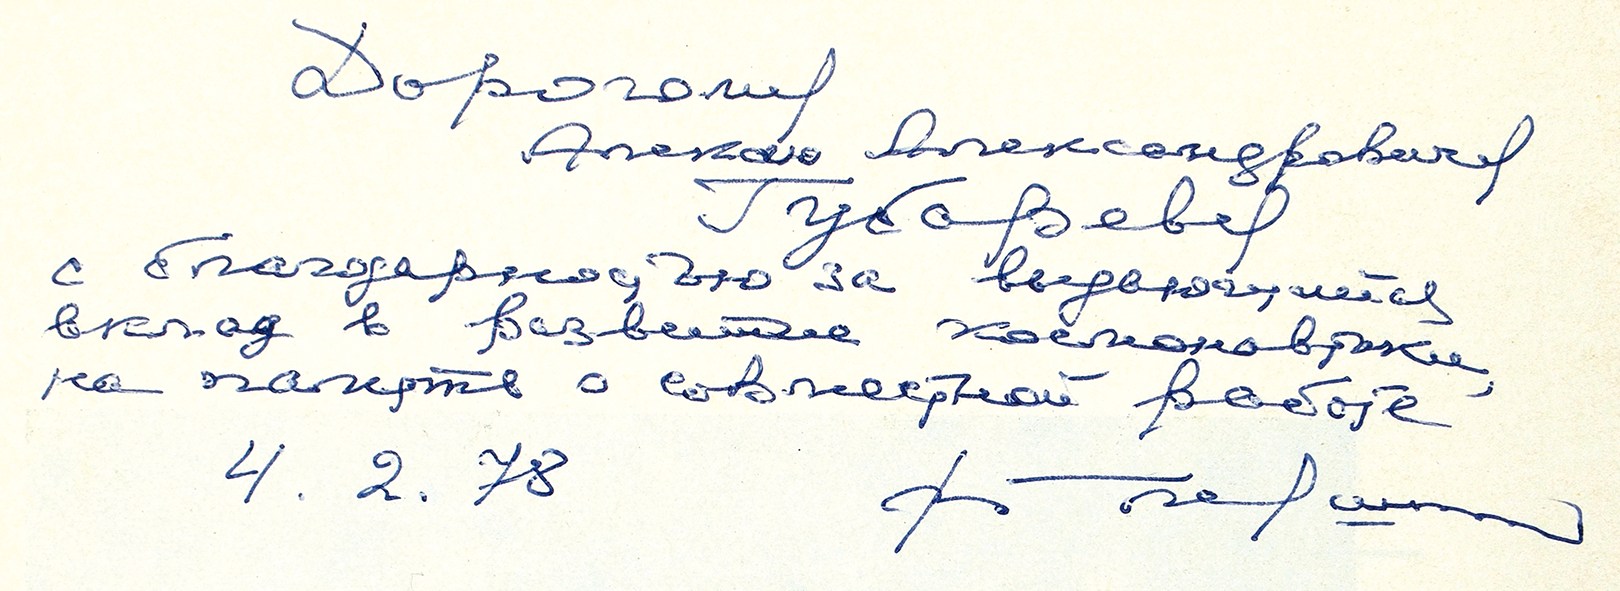 Дорогому
Алексею Александровичу
Губареву
с благодарностью за выдающийся
вклад в развитие космонавтики,
на память о совместной работе
4. 2. 78